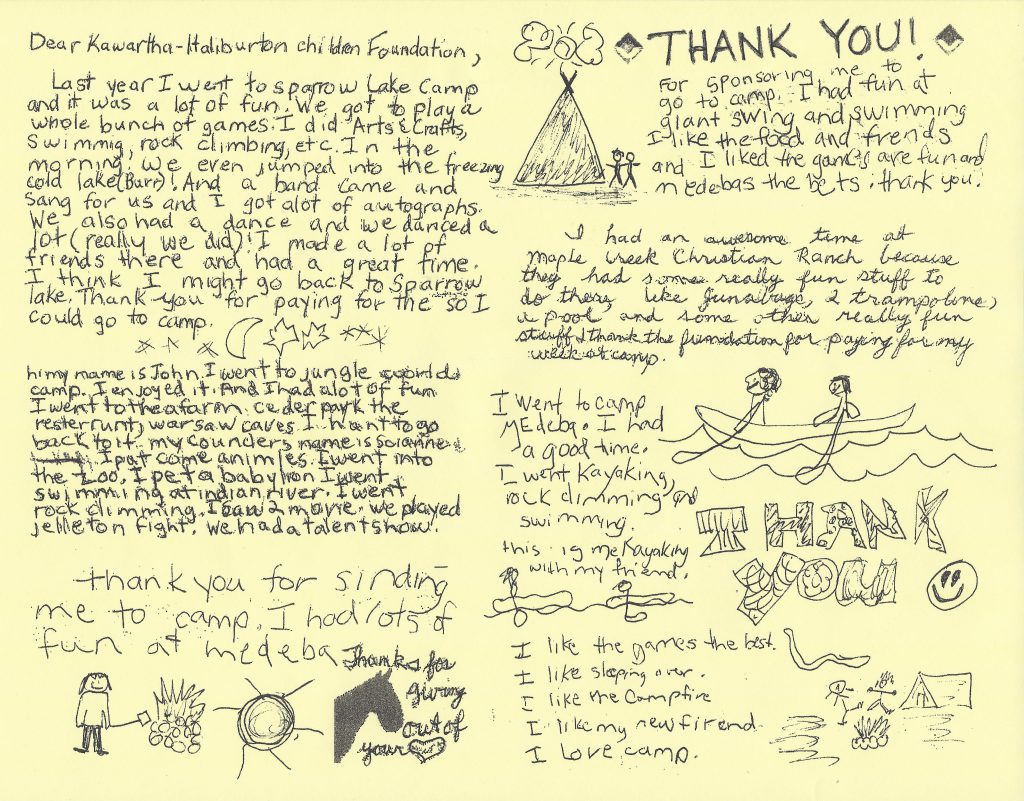 Dear Kawartha-Haliburton children Foundation,
Last year I went to sparrow Lake Camp
and it was a lot of fun. We got to play a
whole bunch of games. I did Arts & Crafts,
Swimmig, rock climbing, etc. In the
morning, we even jumped into the freezing
cold lake (Burr)! And a band came and
sang for us and I got alot of autographs.
We also had a dance and we danced a
lot (really we did)! I made a lot of
friends there and had a great time.
I think I might go back to Sparrow
lake. Thank-you for paying for the so I
could go to camp.
hi my name is John. I went to jungle world
camp. I enjoyed it. And I had alot of fun
I went to the a farm. ceder park the
resterrunt, warsaw caves. I want to go
back to it. my counders name is
I pat come animles. I went into
the zoo. I pet a baby lion I went
swimming at indian river. I went
rock climming. I saw 2 movie. we played
jelleton fight. we had a talent show.
thank you for sinding
me to camp. I had lots of
fun at medeba
Thanks for
giving
out of
your
THANK YOU!
For sponsoring me to
go to camp. I had fun at
giant swing and swimming
I like the food and frends
and I liked the games are fun and
medebas the bets. thank you.
I had an awesome time at
Maple Creek Christian Ranch because
they had some really fun stuff to
do there, like 2 trampoline,
a pool, and some other really fun
stuff I thank the foundation for paying for my
week at camp.
I went to camp
MEdeba. I had
a good time.
I went Kayaking,
rock climming and
swimming.
this is me Kayaking
with my friend.
THANK
YOU
I like the games the best.
I like sleping over.
I like the Campfire
I like my new firend
I Love camp.